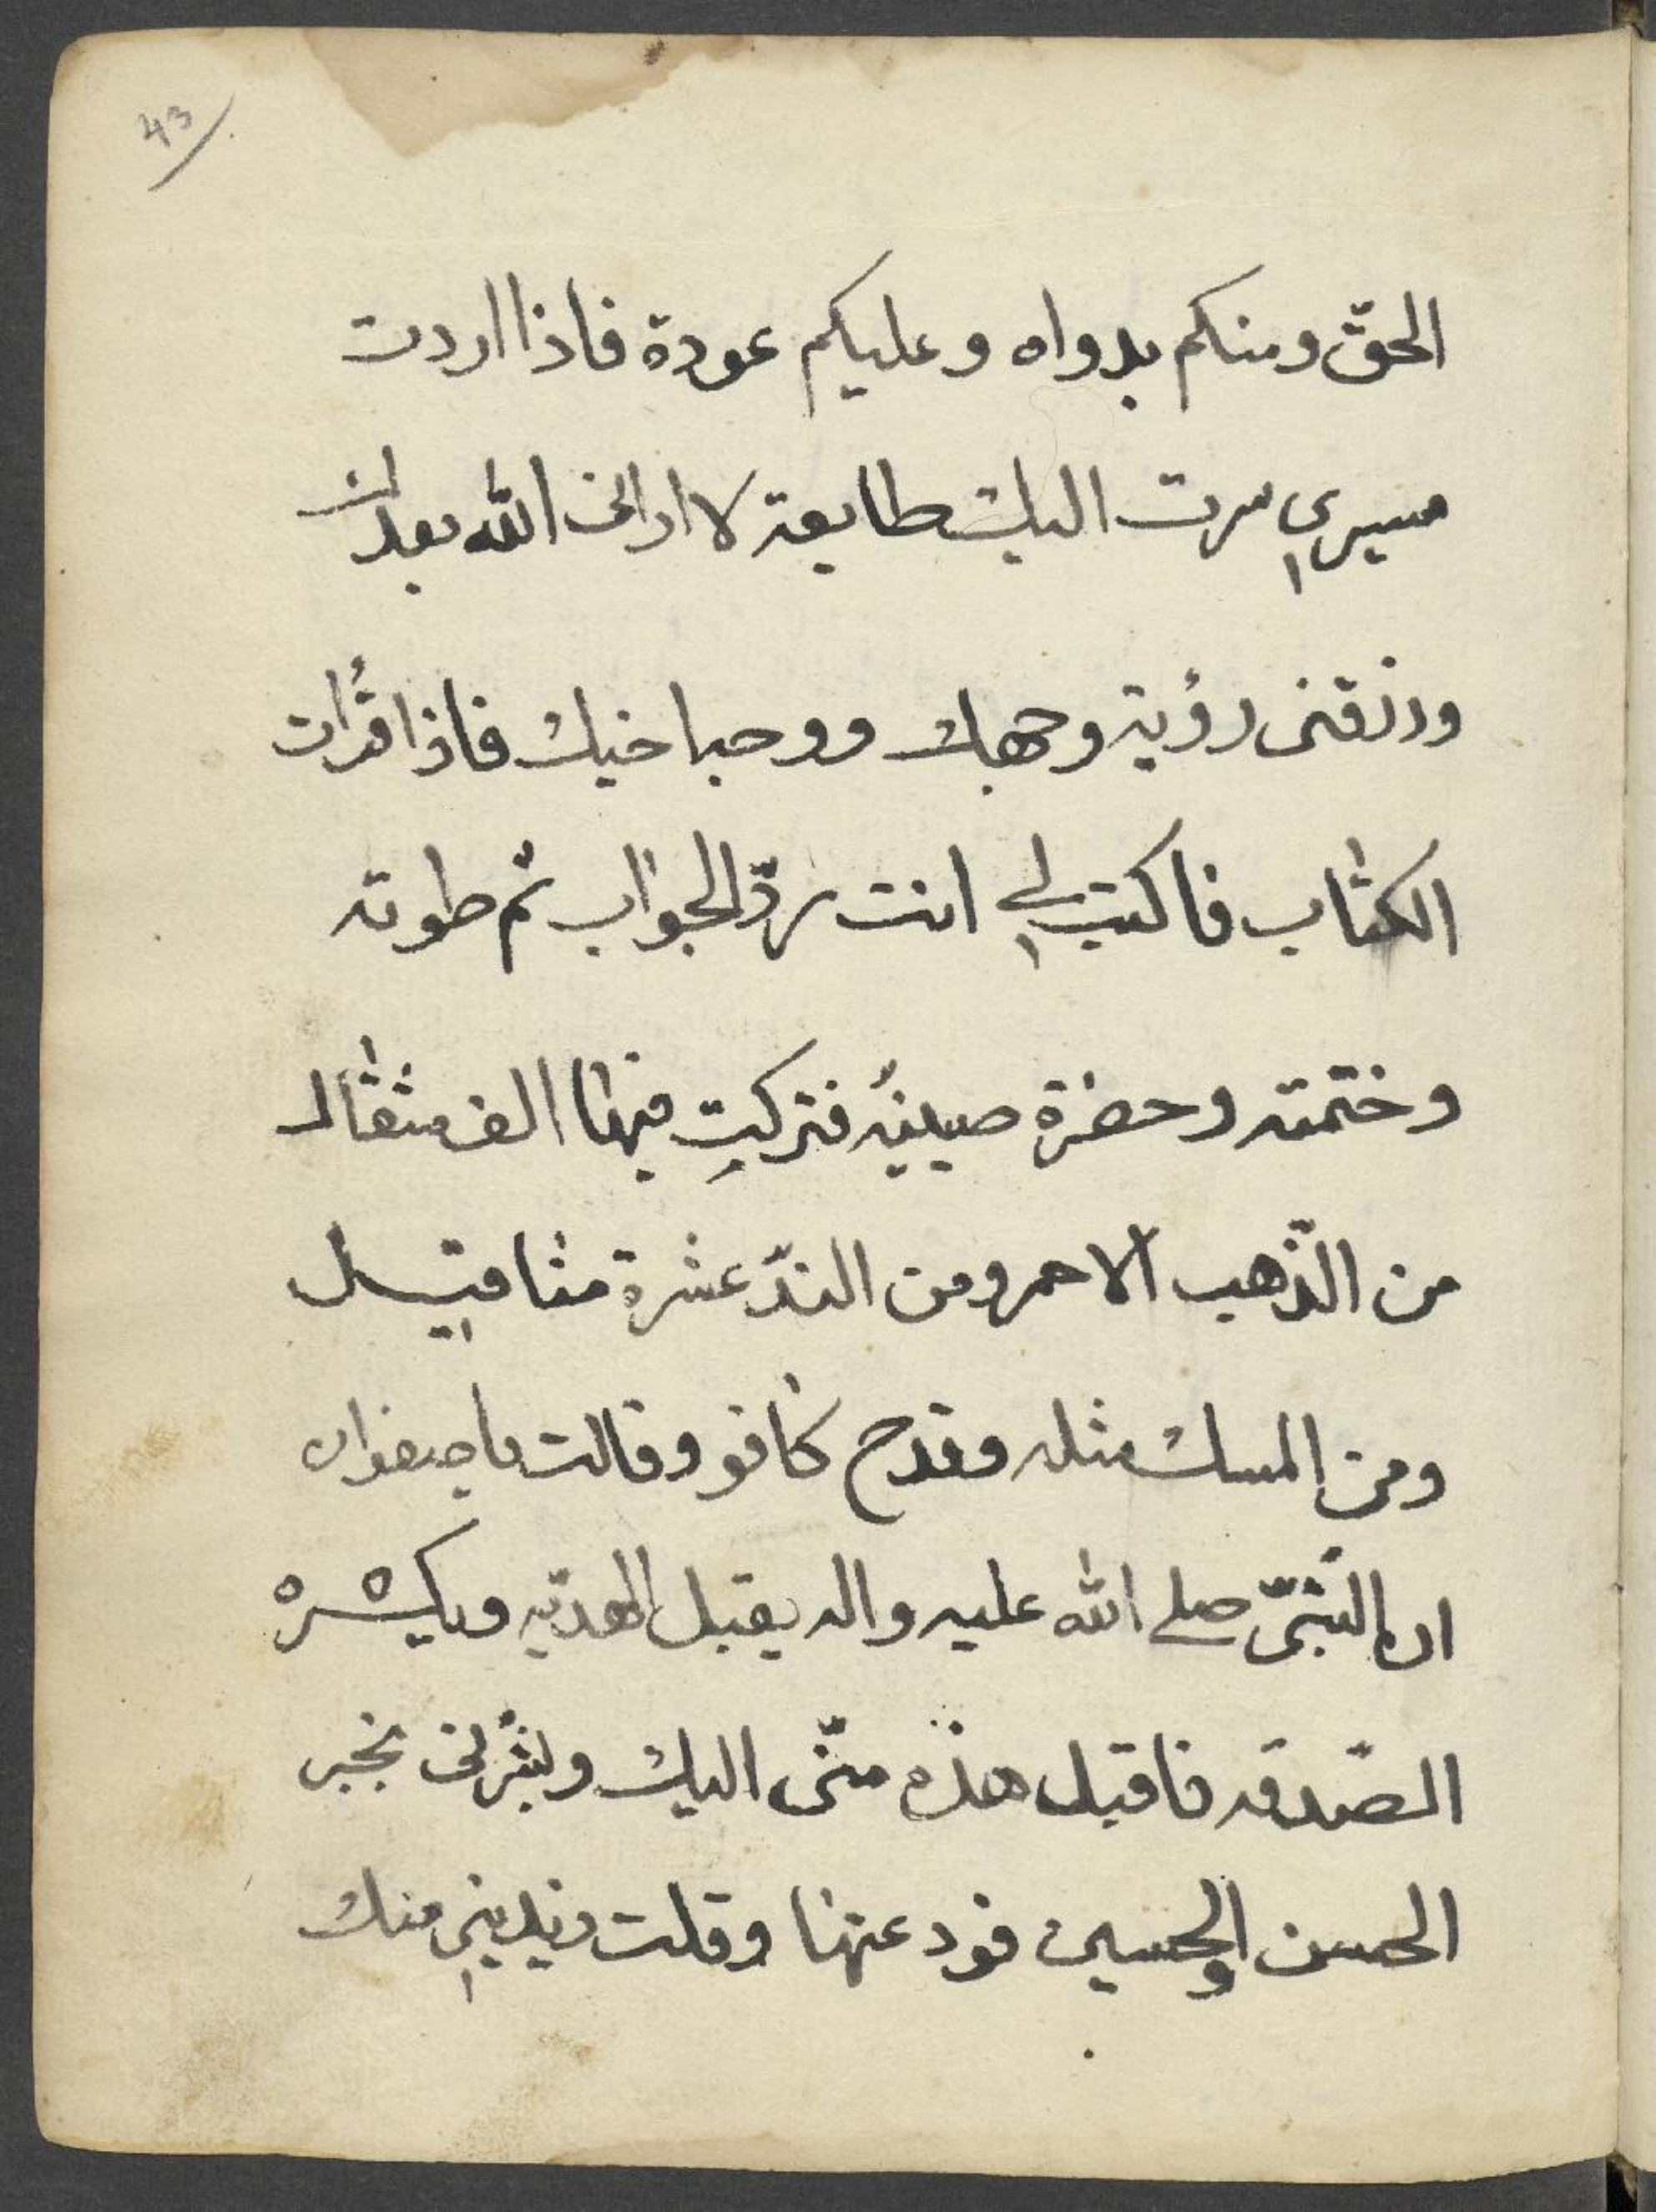 43
الحقّ ومنكم بدواه وعليكم عودة فاذا اردت
مسيري سرت اليك طايعة لا اراني الله بعدك
ورزقني رؤية وجهك ووجه اخيك فاذا قرأت
الكتاب فاكتب لي انت ردّ الجواب ثم طوته
وختمته وحضرة صينيه فتركت فيها الف مثقال
من الذّهب الاحمر ومن الندّ عشرة مثاقيل
ومن المسك مثله وقدح كافو وقالت يا صفوان
ان النبيّ صلى الله عليه واله يقبل الهديّه ويكره
الصّدقه فاقبل هذه منّى اليك وبشّرنى بخبر
الحسن والحسين فودعتها وقلت منك